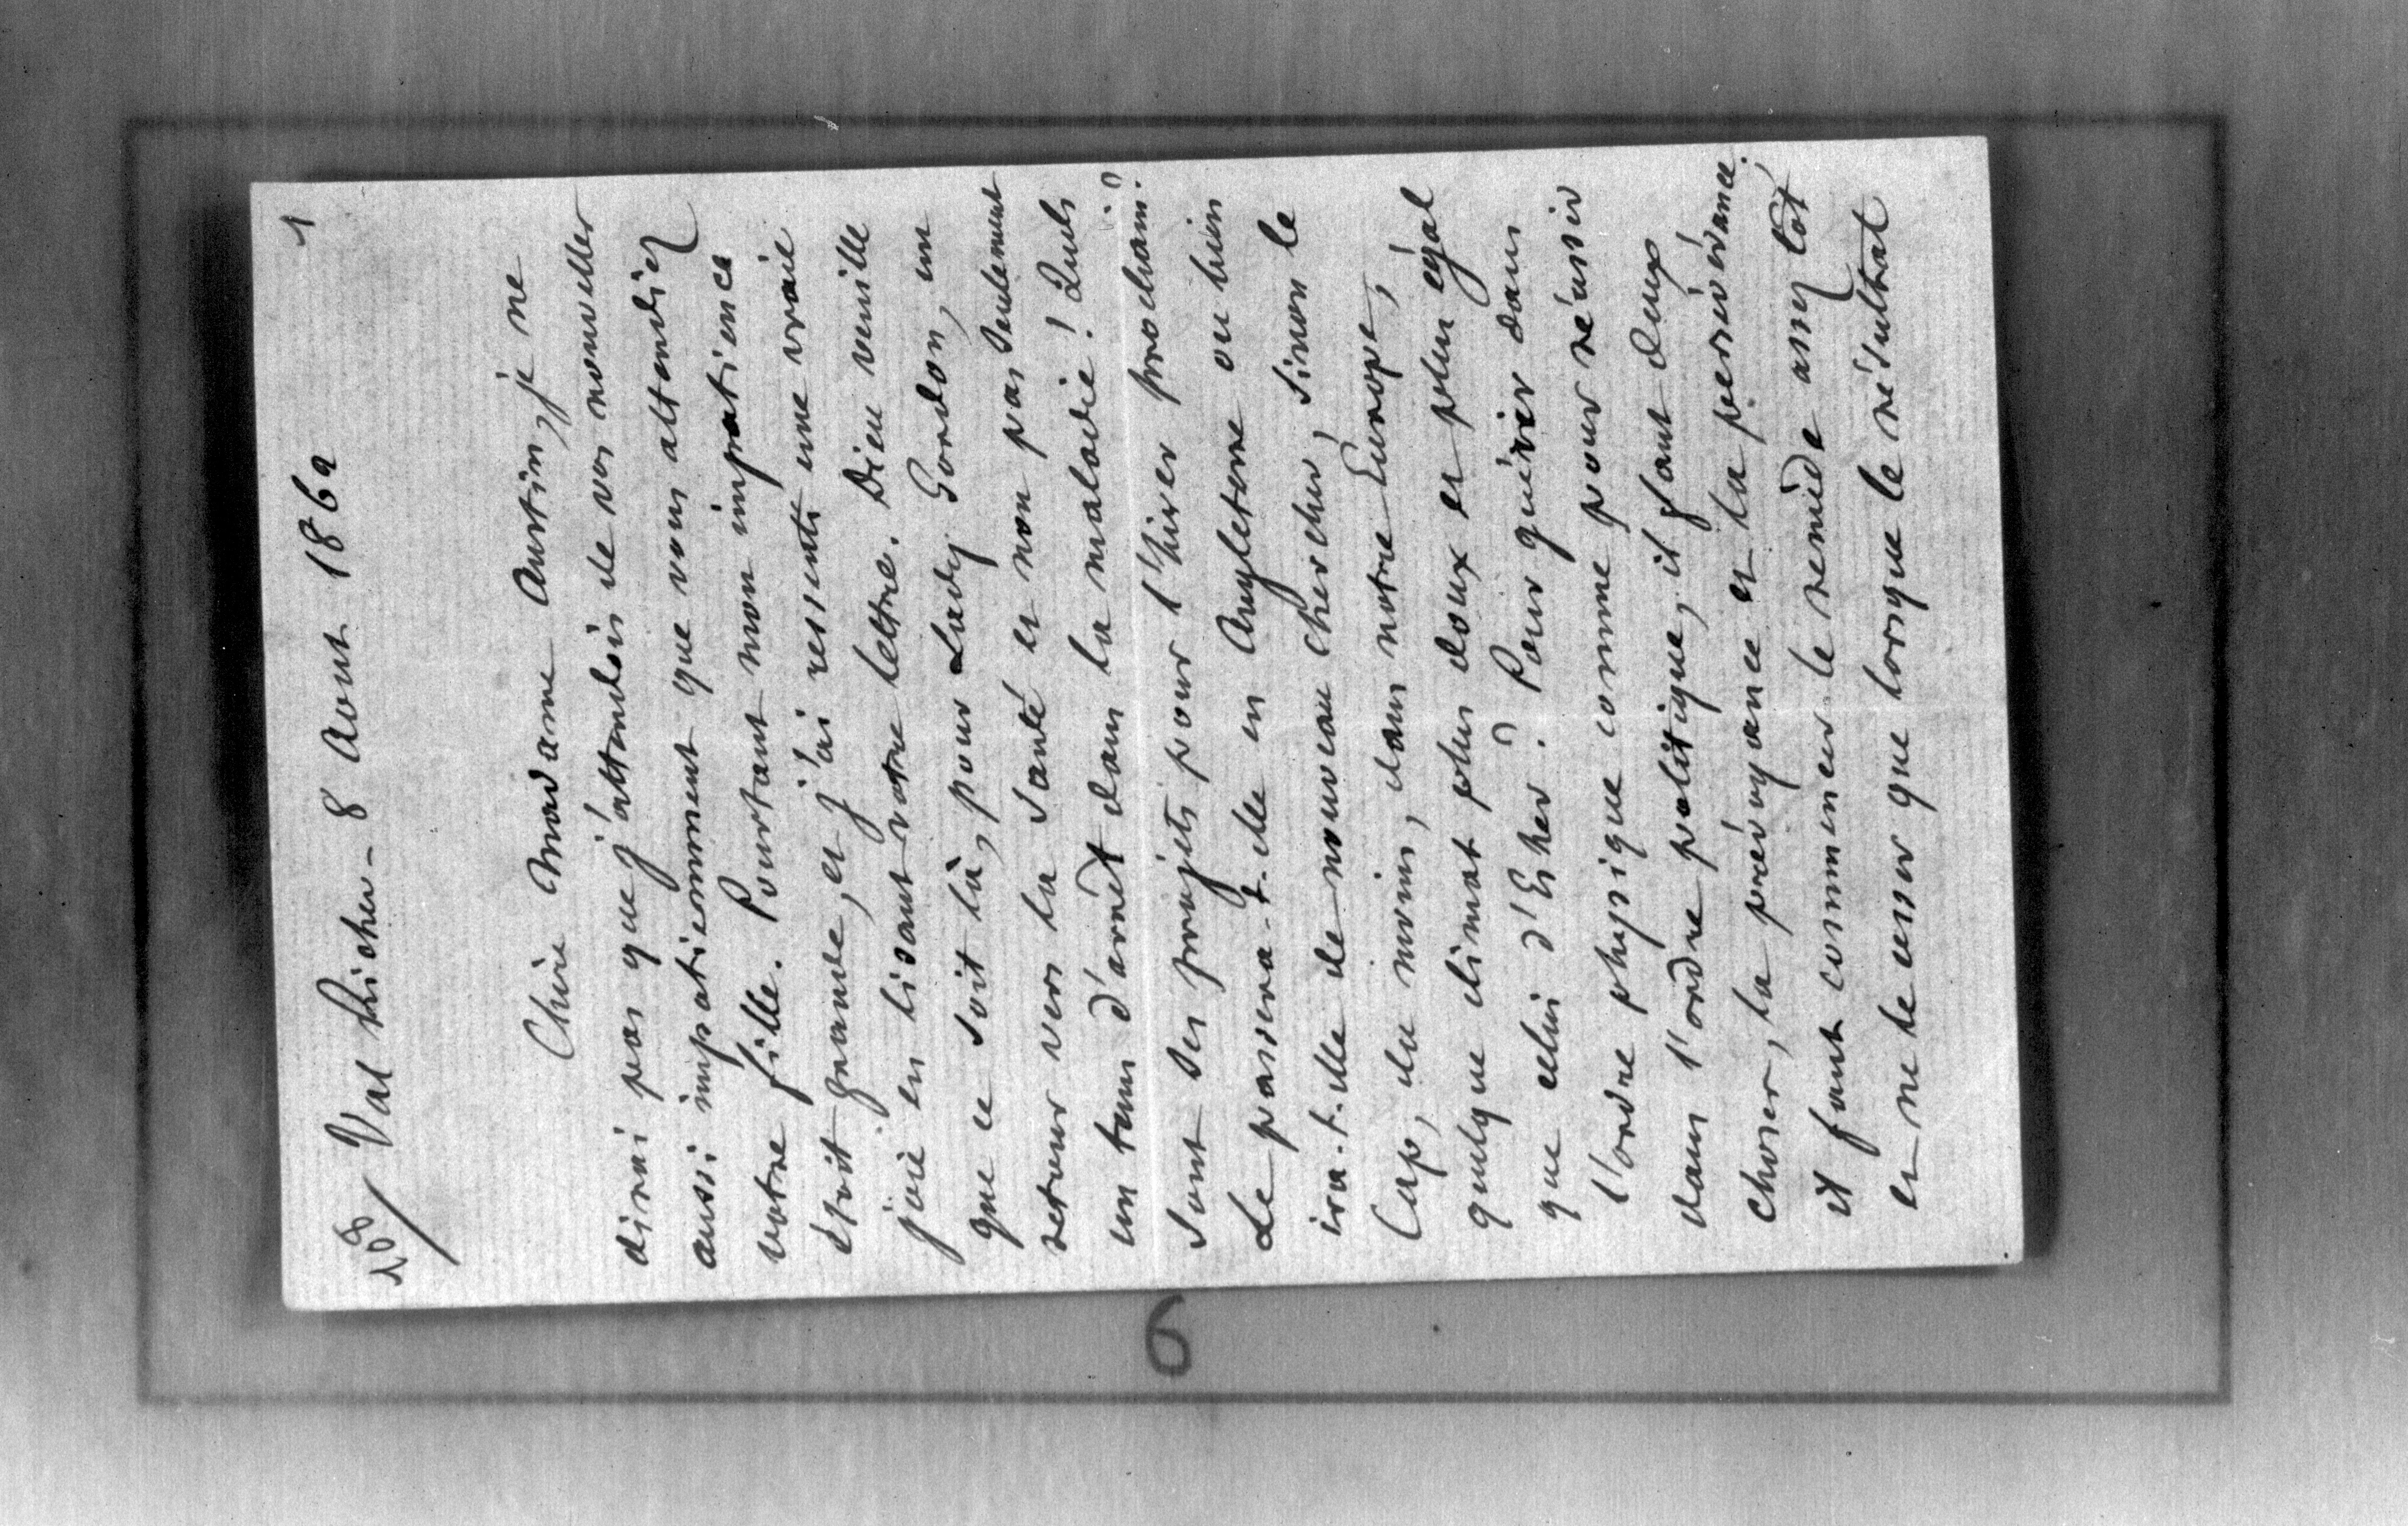 1
108/ Val Richer - 8 Août 1862
Chère Madame Austin, je ne
dirai pas que j'attendois de vos nouvelles
aussi impatiemment que vous attendiez
votre fille. Pourtant mon impatience
étoit grande, et j'ai ressenti une vraie
joie en lisant votre lettre. Dieu veuille
que ce soit là, pour Lady Gordon, un
retour vers la santé et non pas seulement
un tems d'arrêt dans la maladie ! Quels
sont ses projets pour l'hiver prochain ?
Le passera-t-elle en Angleterre ou bien
ira-t-elle de nouveau chercher, sinon le
Cap, du moins, dans notre Europe,
quelque climat plus doux et plus égal
que celui d'Esher ? Pour guérir dans
l'ordre physique comme pour réussir
dans l'ordre politique, il faut deux
choses, la prévoyance et la persévérance ;
il faut commencer le remède assez tôt
et ne le cesser que lorsque le résultat
6